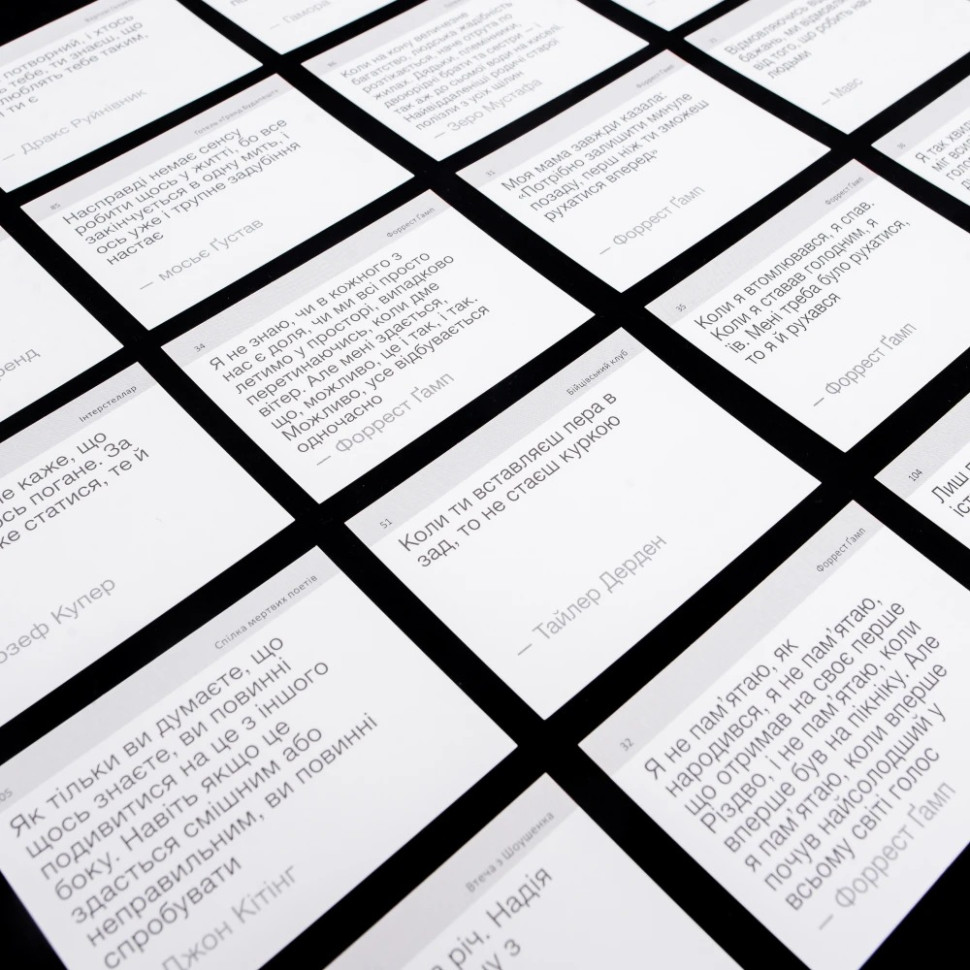 потворний, і хтось
тебе, ти знаєш, що
люблять тебе таким,
ти є
— Дракс Руйнівник
— Гамора
Коли на кону величезне
багатство, людська жадібність
розтікається, наче отрута по
жилах. Дядьки, племінники,
двоюрідні брати та сестри — і
так аж до сьомої води на киселі.
Найвіддаленіші родичі старої
полізли з усіх щілин
— Зеро Мустафа
Відмовляючись
бажань, ми
від того, що робить нас
людьми
— Мавс
45
Насправді немає сенсу
робити щось у житті, бо все
закінчується в одну мить, і
ось уже і трупне задубіння
настає
— мосьє Ґустав
31
Форрест Ґамп
Моя мама завжди казала:
«Потрібно залишити минуле
позаду, перш ніж ти зможеш
рухатися вперед»
— Форрест Ґамп
Я так
міг
голо
34
Форрест Ґамп
Я не знаю, чи в кожного з
нас є доля, чи ми всі просто
летимо у просторі, випадково
перетинаючись, коли дме
вітер. Але мені здається,
що, можливо, це і так, і так.
Можливо, усе відбувається
одночасно
— Форрест Ґамп
35
Форрест Ґамп
Коли я втомлювався, я спав.
Коли я ставав голодним, я
їв. Мені треба було рухатися,
то я й рухався
— Форрест Ґамп
ренд
Інтерстеллар
не каже, що
ось погане. За
же статися, те й
озеф Купер
51
Бійцівський клуб
Коли ти вставляєш пера в
зад, то не стаєш куркою
— Тайлер Дерден
104
Лиш
іст
05
Спілка мертвих поетів
Як тільки ви думаєте, що
щось знаєте, ви повинні
подивитися на це з іншого
боку. Навіть якщо це
здасться смішним або
неправильним, ви повинні
спробувати
Джон Кітінг
32
Форрест Ґамп
Я не пам'ятаю, як
народився, я не пам'ятаю,
що отримав на своє перше
Різдво, і не пам'ятаю, коли
вперше був на пікніку. Але
я пам'ятаю, коли вперше
почув найсолодший у
всьому світі голос
— Форрест Ґамп
Втеча з Шоушенка
річ. Надія
у з